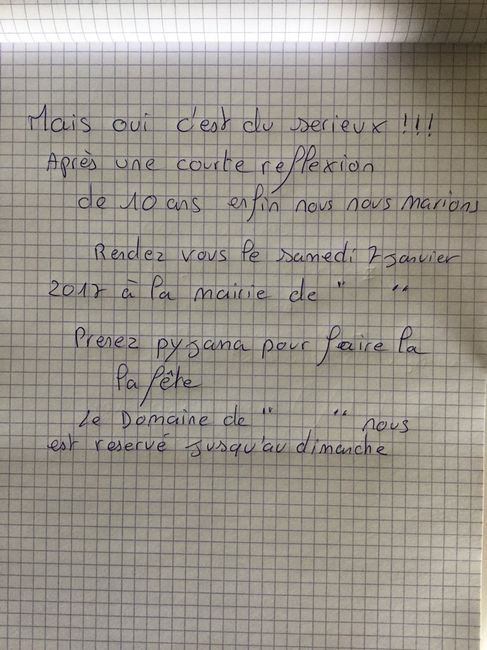 Mais oui c'est du serieux !!!
Après une courte reflexion
de 10 ans enfin nous nous marions
Rendez vous le samedi 7 janvier
2017 à la mairie de " "
Prenez pyjama pour faire la
la fête
Le Domaine de " " nous
est reservé jusqu'au dimanche